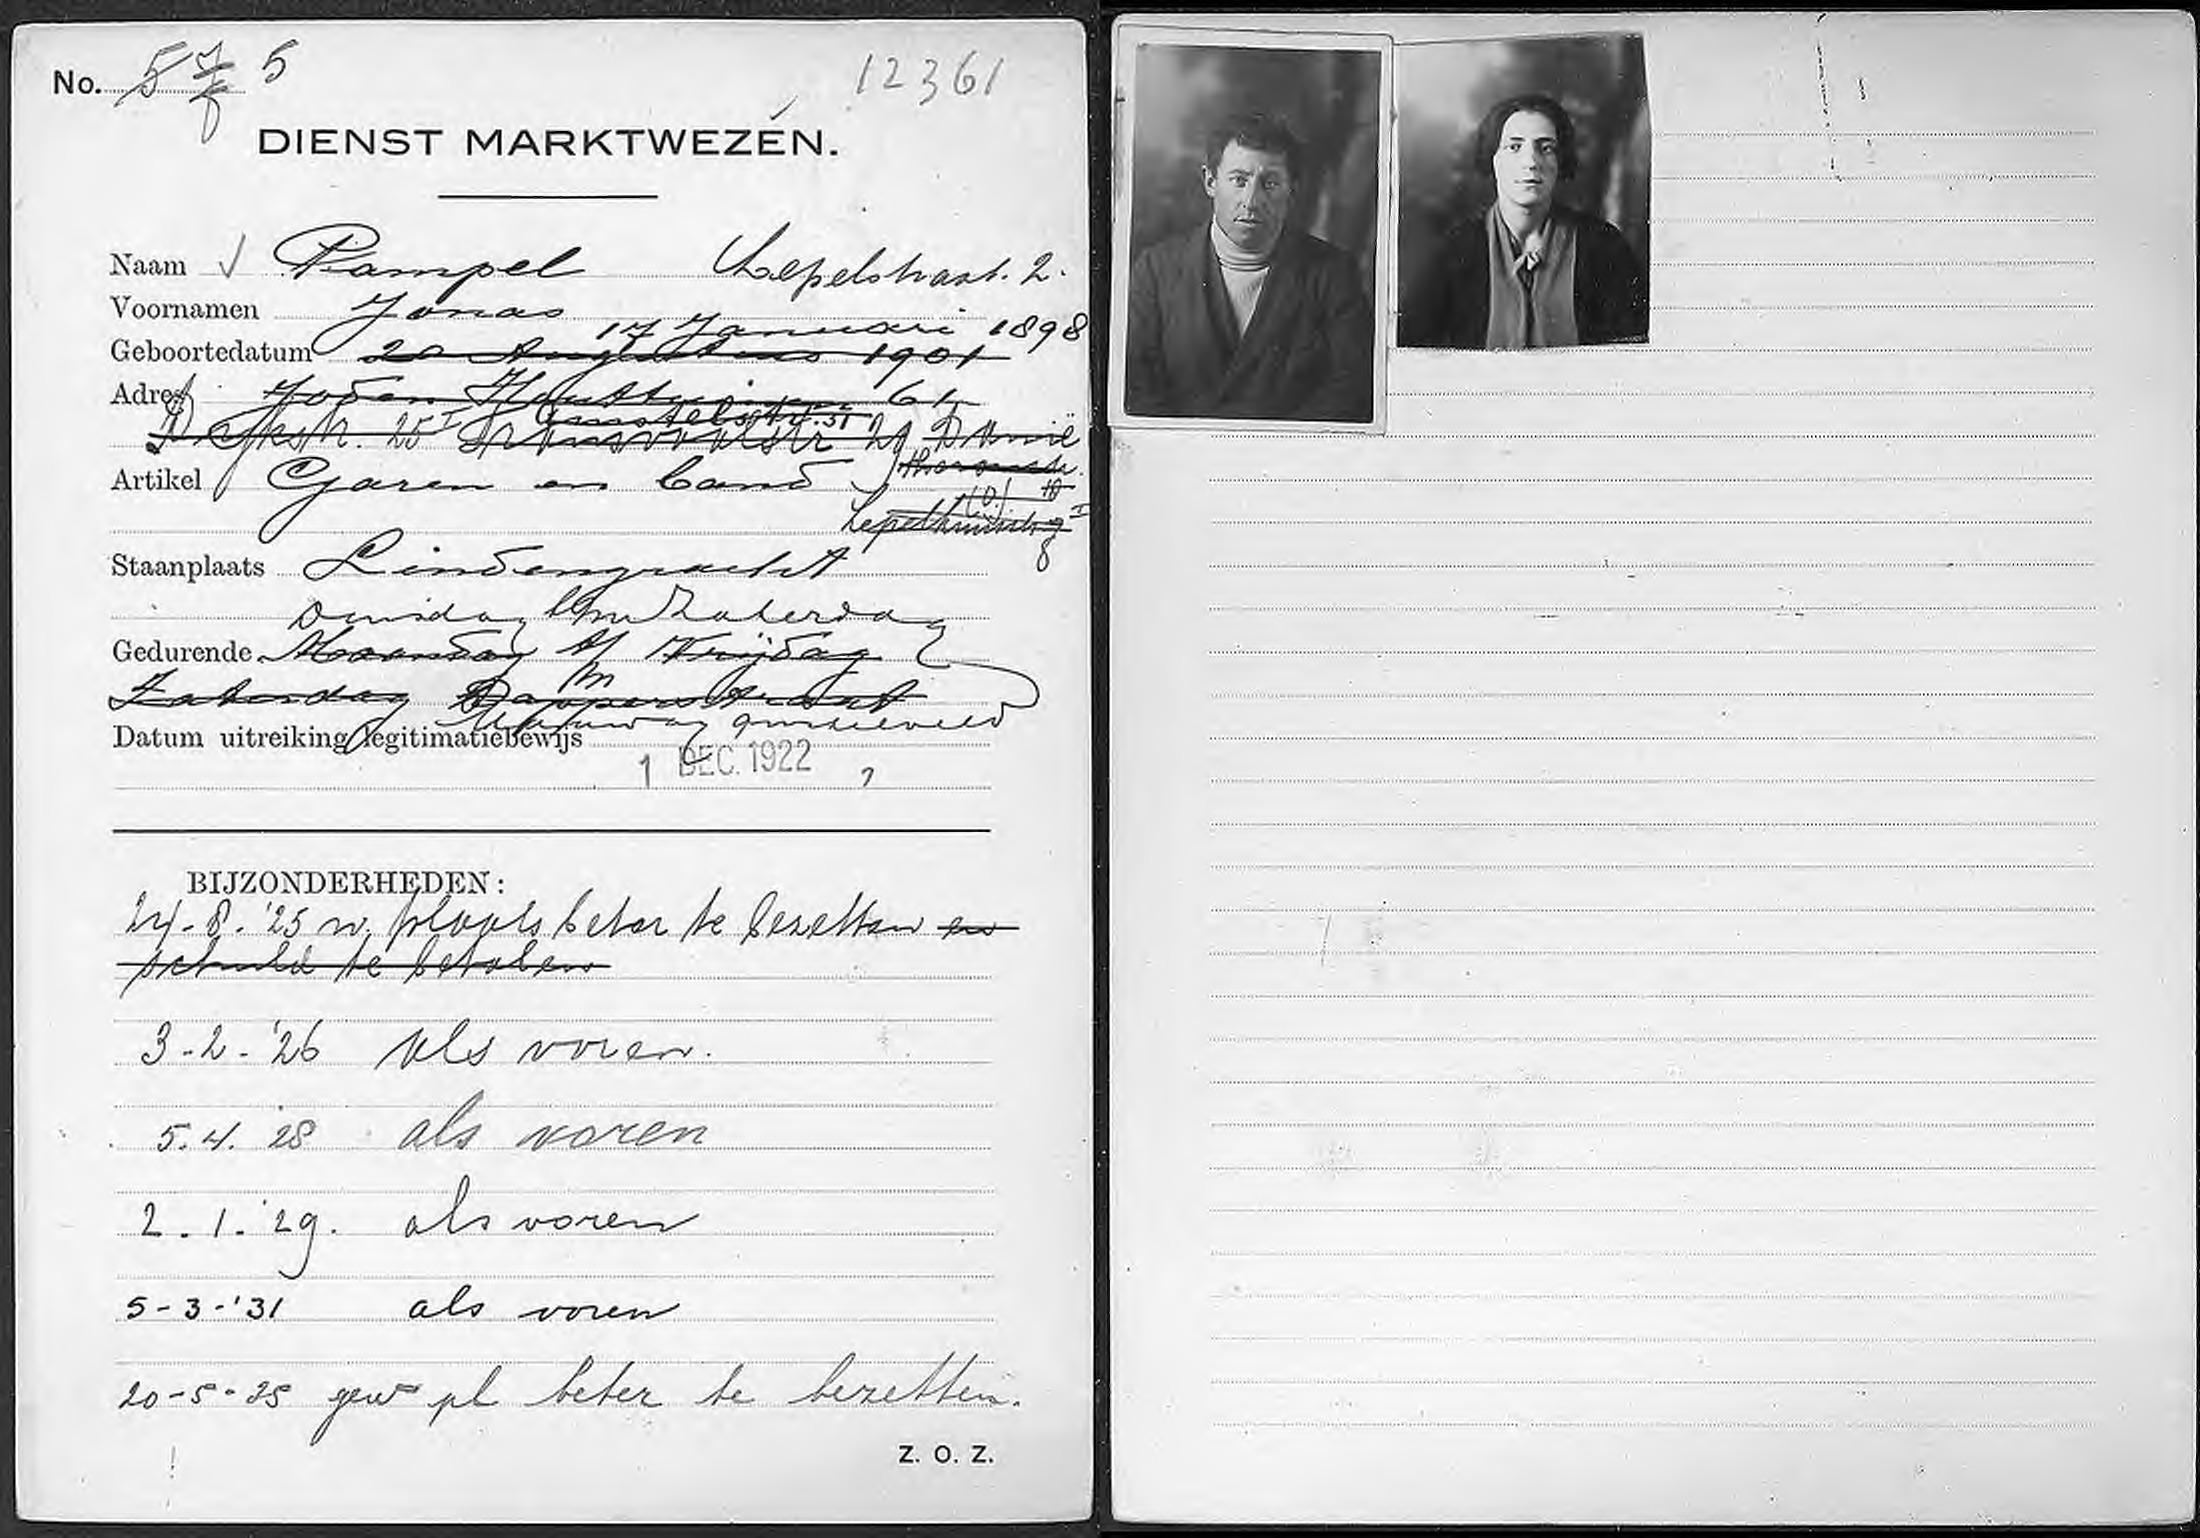 No. 5 7 5
12361
DIENST MARKTWEZEN.
Naam Pampel Lepelstraat. 2.
Voornamen Jonas
17 Januari 1898
Geboortedatum 20 Augustus 1901
Adres Joden Houttuinen 61
Amstelstr. 31
D kstr. 25 I Transvaalstr 29 Danië
Artikel Garen en band
8
Staanplaats Lindengracht
Dinsdag t/m Zaterdag
Gedurende Maandag t/m Vrijdag
Zaterdag Dapperstraat
Maandag Amstelveld
Datum uitreiking legitimatiebewijs
1 DEC. 1922
BIJZONDERHEDEN:
24-8-'25 w. plaats beter te bezetten en
schuld te betalen
3-2-'26 als voren.
5.4.'28 als voren
2.1.'29. als voren
5-3-'31 als voren
gew pl beter te bezetten.
Z. O. Z.